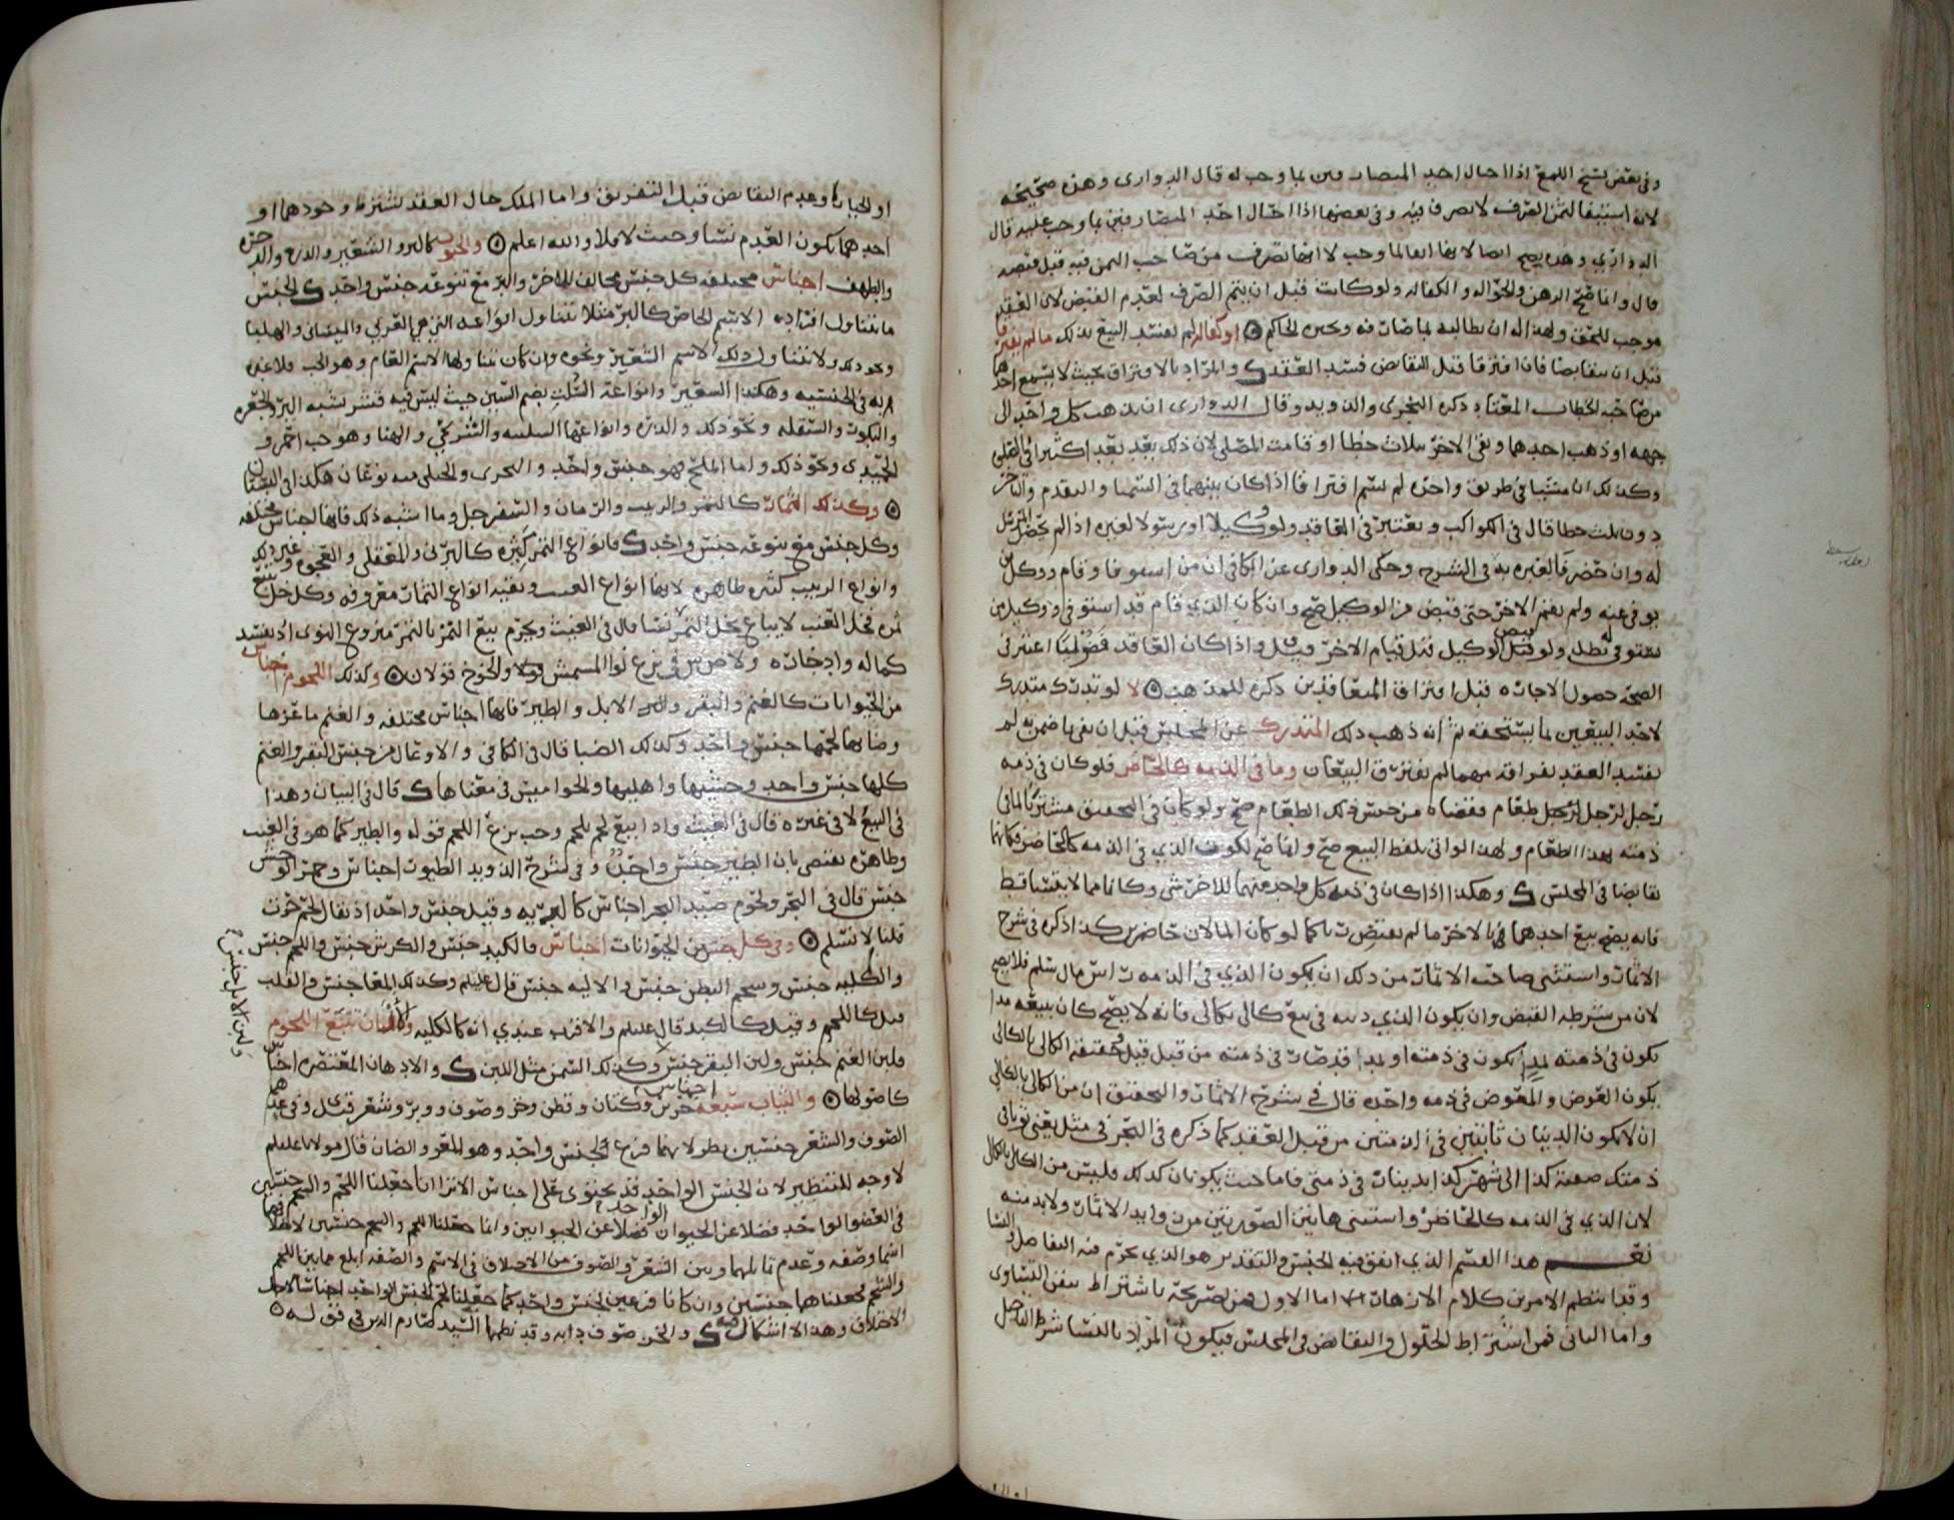 وفي بعض نسخ اللمع اذا احال احد المتصارفين بما وجب له قال الدواري وهذه صحيحه
لانه استيفا لثمن الصرف لا تصرف فيه وفي بعضها اذا احال احد المتصارفين بما وجب عليه قال
الدواري وهذه يصح ايضا لانها ايفا لما وجب لا انها تصرف من صاحب الثمن فيه قبل قبضه
قال وانما صح الرهن والحواله والكفاله ولو كانت قبل ان يتم الصرف لعدم القبض لان العقد
موجب للحق ولهذا له ان يطالبه بما صارفه ويجبره الحاكم ۞ او كفاله لم يفسد البيع بذلك ما لم يفترقا
قبل ان يتقابضا فان افترقا قبل التقابض فسد العقد والمراد بالافتراق بحيث لا يسمع احدهما
من صاحبه الخطاب المعتاد ذكره النجري والدويد وقال الدواري ان يذهب كل واحد الى
جهه او ذهب احدهما وبقي الاخر ثلاث خطا او قامت المصلى لان ذلك بعد بعد اكثيرا في الفعلي
وكذلك ان مشيا في طريق واحده لم يسم افتراقا اذا كان بينهما في المشيا والتقدم والتاخر
دون ثلث خطا قال في الكواكب ويعتبر في العاقد ولو وكيلا او رسولا لغيره اذا لم يحضر المرسل
له وان حضر فالعبره به في الشرح وحكى الدواري عن الكافي ان من استوفا وقام ووكل من
يوفي عنه ولم يقم الاخر حتى قبض من الوكيل صح وان كان الذي قام قد استوفى او وكيل من
يستوفي له بطل ولو قبض الوكيل قبل قيام الاخر وقيل واذا كان العاقد فضوليا اعتبر في
الصحه حصول الاجازه قبل افتراق المتعاقدين ذكره للمذهب ۞ لا لو تدرك متدرك
لاحد البيعين بما يستحقه ثم انه ذهب ذلك المتدرك عن المجلس قبل ان يفي بما ضمن به لم
يفسد العقد بفراقه مهما لم يفترق البيعان وما في الذمه كالحاضر فلو كان في ذمه
رجل لرجل طعام فقضاه من جنس ذلك الطعام صح ولو كان في التحقيق مشتريا لما في
ذمته بهذا الطعام ولهذا لو اتى بلفظ البيع صح وانما صح لكون الذي في الذمه كالحاضر فكانهما
تقابضا في المجلس وهكذا اذا كان في ذمه كل واحد منهما للاخر شي وكانا مما لا يتساقط
فانه يصح بيع احدهما بالاخر ما لم يفترقا كما لو كان المالان حاضرين كذا ذكره في شرح
الاثمار واستثنى صاحب الاثمار من ذلك ان يكون الذي في الذمه راس مال سلم فلا يصح
لان من شرطه القبض وان يكون الذي دينه في بيع كالي بكالي فانه لا يصح كان يبيعه مدا
يكون في ذمته لمد يكون في ذمته او لمد قد صار في ذمته من قبل قيل وحقيقة الكالي بالكالي
يكون العوض والمعوض في ذمه واحده قال في شرح الاثمار والتحقيق ان من الكالي بالكالي
ان لا يكون الدينان ثابتين في الذمتين من قبل العقد كما ذكره في البحر في مثل بعني ثوبا في
ذمتك صفته كذا الى شهر كذا بدينار في ذمتي فاما حيث يكونان كذلك فليس من الكالي بالكالي
لان الذي في الذمه كالحاضر واستثنى هاتين الصورتين مرن وايد الاثمار ولا بد منه
نعم هذا القسم الذي اتفق فيه الجنس والتقدير هو الذي يحرم فيه التفاضل والنسا
وقد انتظم الامرين كلام الازهار اما الاول فمن تصريحه باشتراط تيقن التساوي
واما الثاني فمن اشتراط الحلول والتقابض في المجلس فيكون المراد بالنسا شرط التاجيل
او الخيار او عدم التقابض قبل التفريق واما الملك حال العقد لشرط وجودهما او
احدهما يكون العدم نسا وحيث لا فلا والله اعلم ۞ والحبوب كالبر والشعير والذره والدخن
والطهف اجناس مختلفه كل جنس مخالف للاخر والبر مع تنوعه جنس واحد والجنس
ما يتناول افراده الاسم الخاص كالبر مثلا يتناول انواعه التي هي العربي والميساني والهلبا
ونحو ذلك ولا يتناول ذلك الاسم الشعير ونحوه وان كان يتناولها الاسم العام وهو الحب فلا عبره
به في الجنسيه وهكذا الشعير وانواعه السلت بضم السين حيث ليس فيه قشر شبه البر والجعره
والبكور والسقله ونحو ذلك والذره وانواعها السلبه والشركي والهنا وهو حب احمر و
الحميدى ونحو ذلك واما الملح فهو جنس واحد والبحري والجبلي منه نوعان هكذا في البستان
۞ وكذلك الثمار كالتمر والزبيب والرمان والسفرجل وما اشبه ذلك فانها اجناس مختلفه
وكل جنس مع تنوعه جنس واحد فانواع التمر كثيره كالبرني والمعقلي والعجوه وغير ذلك
وانواع الزبيب كثيره ظاهره لانها انواع العنب وبقيه انواع الثمار معروفه وكل خل تبع
ثمره فخل العنب لا يباع بخل التمر نسا قال في الغيث ويحرم بيع التمر بالتمر منزوع النوى اذ يفسد
كماله وادخاره ولا حرج في نزع نوا المشمش فولا والخوخ قولان ۞ وكذلك اللحوم اجناس
من الحيوانات كالغنم والبقر والابل والطير فانها اجناس مختلفه والغنم ماعزها
وضانها لحمها جنس واحد وكذلك الضبا قال في الكافي والاوعال من جنس البقر والغنم
كلها جنس واحد وحشيها واهليها والجواميس في معناها قال في البيان وهذا
في البيع لا في غيره قال في الغيث واذا بيع لحم بلحم وجب نزع اللحم قوله والطير كما هو في الغيث
وظاهره يقتضي بان الطير جنس واحد وفي شرح الدويد الطيور اجناس وحمر الوحش
جنس قال في البحر ولحوم صيد البحر اجناس كالبريه وقيل جنس واحد اذ يقال لحم حوت
قلنا لا نسلم ۞ وفي كل جنس من الحيوانات اجناس فالكبد جنس والكرش جنس واللحم جنس
والكليه جنس وشحم البطن جنس والاليه جنس قال عليلم وكذلك المعا جنس والقلب
قيل كاللحم وقيل كالكبد قال عليلم والاقرب عندي انه كالكليه والالبان تتبع اللحوم
فلبن الغنم جنس ولبن البقر جنس وكذلك السمن مثل اللبن والادهان المعتصره اجناس
ولبن الابل جنس
كاصولها ۞ والثياب سبعه اجناس حرير وكتان وقطن وخز وصوف ووبر وشعر قيل وفي عدهم
الصوف والشعر جنسين نظر لانهما فرع لجنس واحد وهو المعز والضان قال مولانا عليلم
لا وجه للتنظير لان الجنس الواحد قد يحتوي على اجناس الا ترا انا جعلنا اللحم والشحم جنسين
في العضو الواحد فضلا عن الحيوان الواحد فضلا عن الحيوانين وانما جعلنا اللحم والشحم جنسين لاختلافهما
اسما وصفه وعدم تماثلهما وبين الشعر والصوف من الاختلاف في الاسم والصفه ابلغ مما بين اللحم
والشحم فجعلناهما جنسين وان كانا فرعين لجنس واحد كما جعلنا لحم الجنس الواحد اجناسا لاجل
الاختلاف وهذا لا اشكال فيه والخز صوف دابه وقد نظمها السيد صارم الدين في قوله ۞